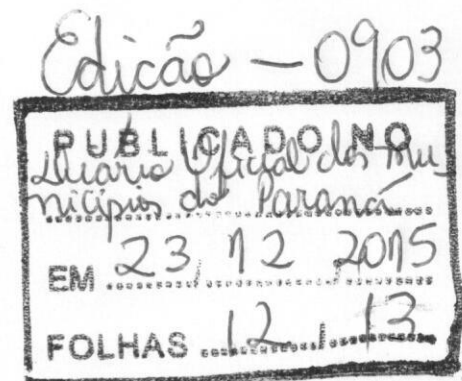 Edicão — 0903
PUBLICADO NO
Diário Oficial dos Mu-
nicípios do Paraná
EM 23, 12 2015
FOLHAS 12 / 13